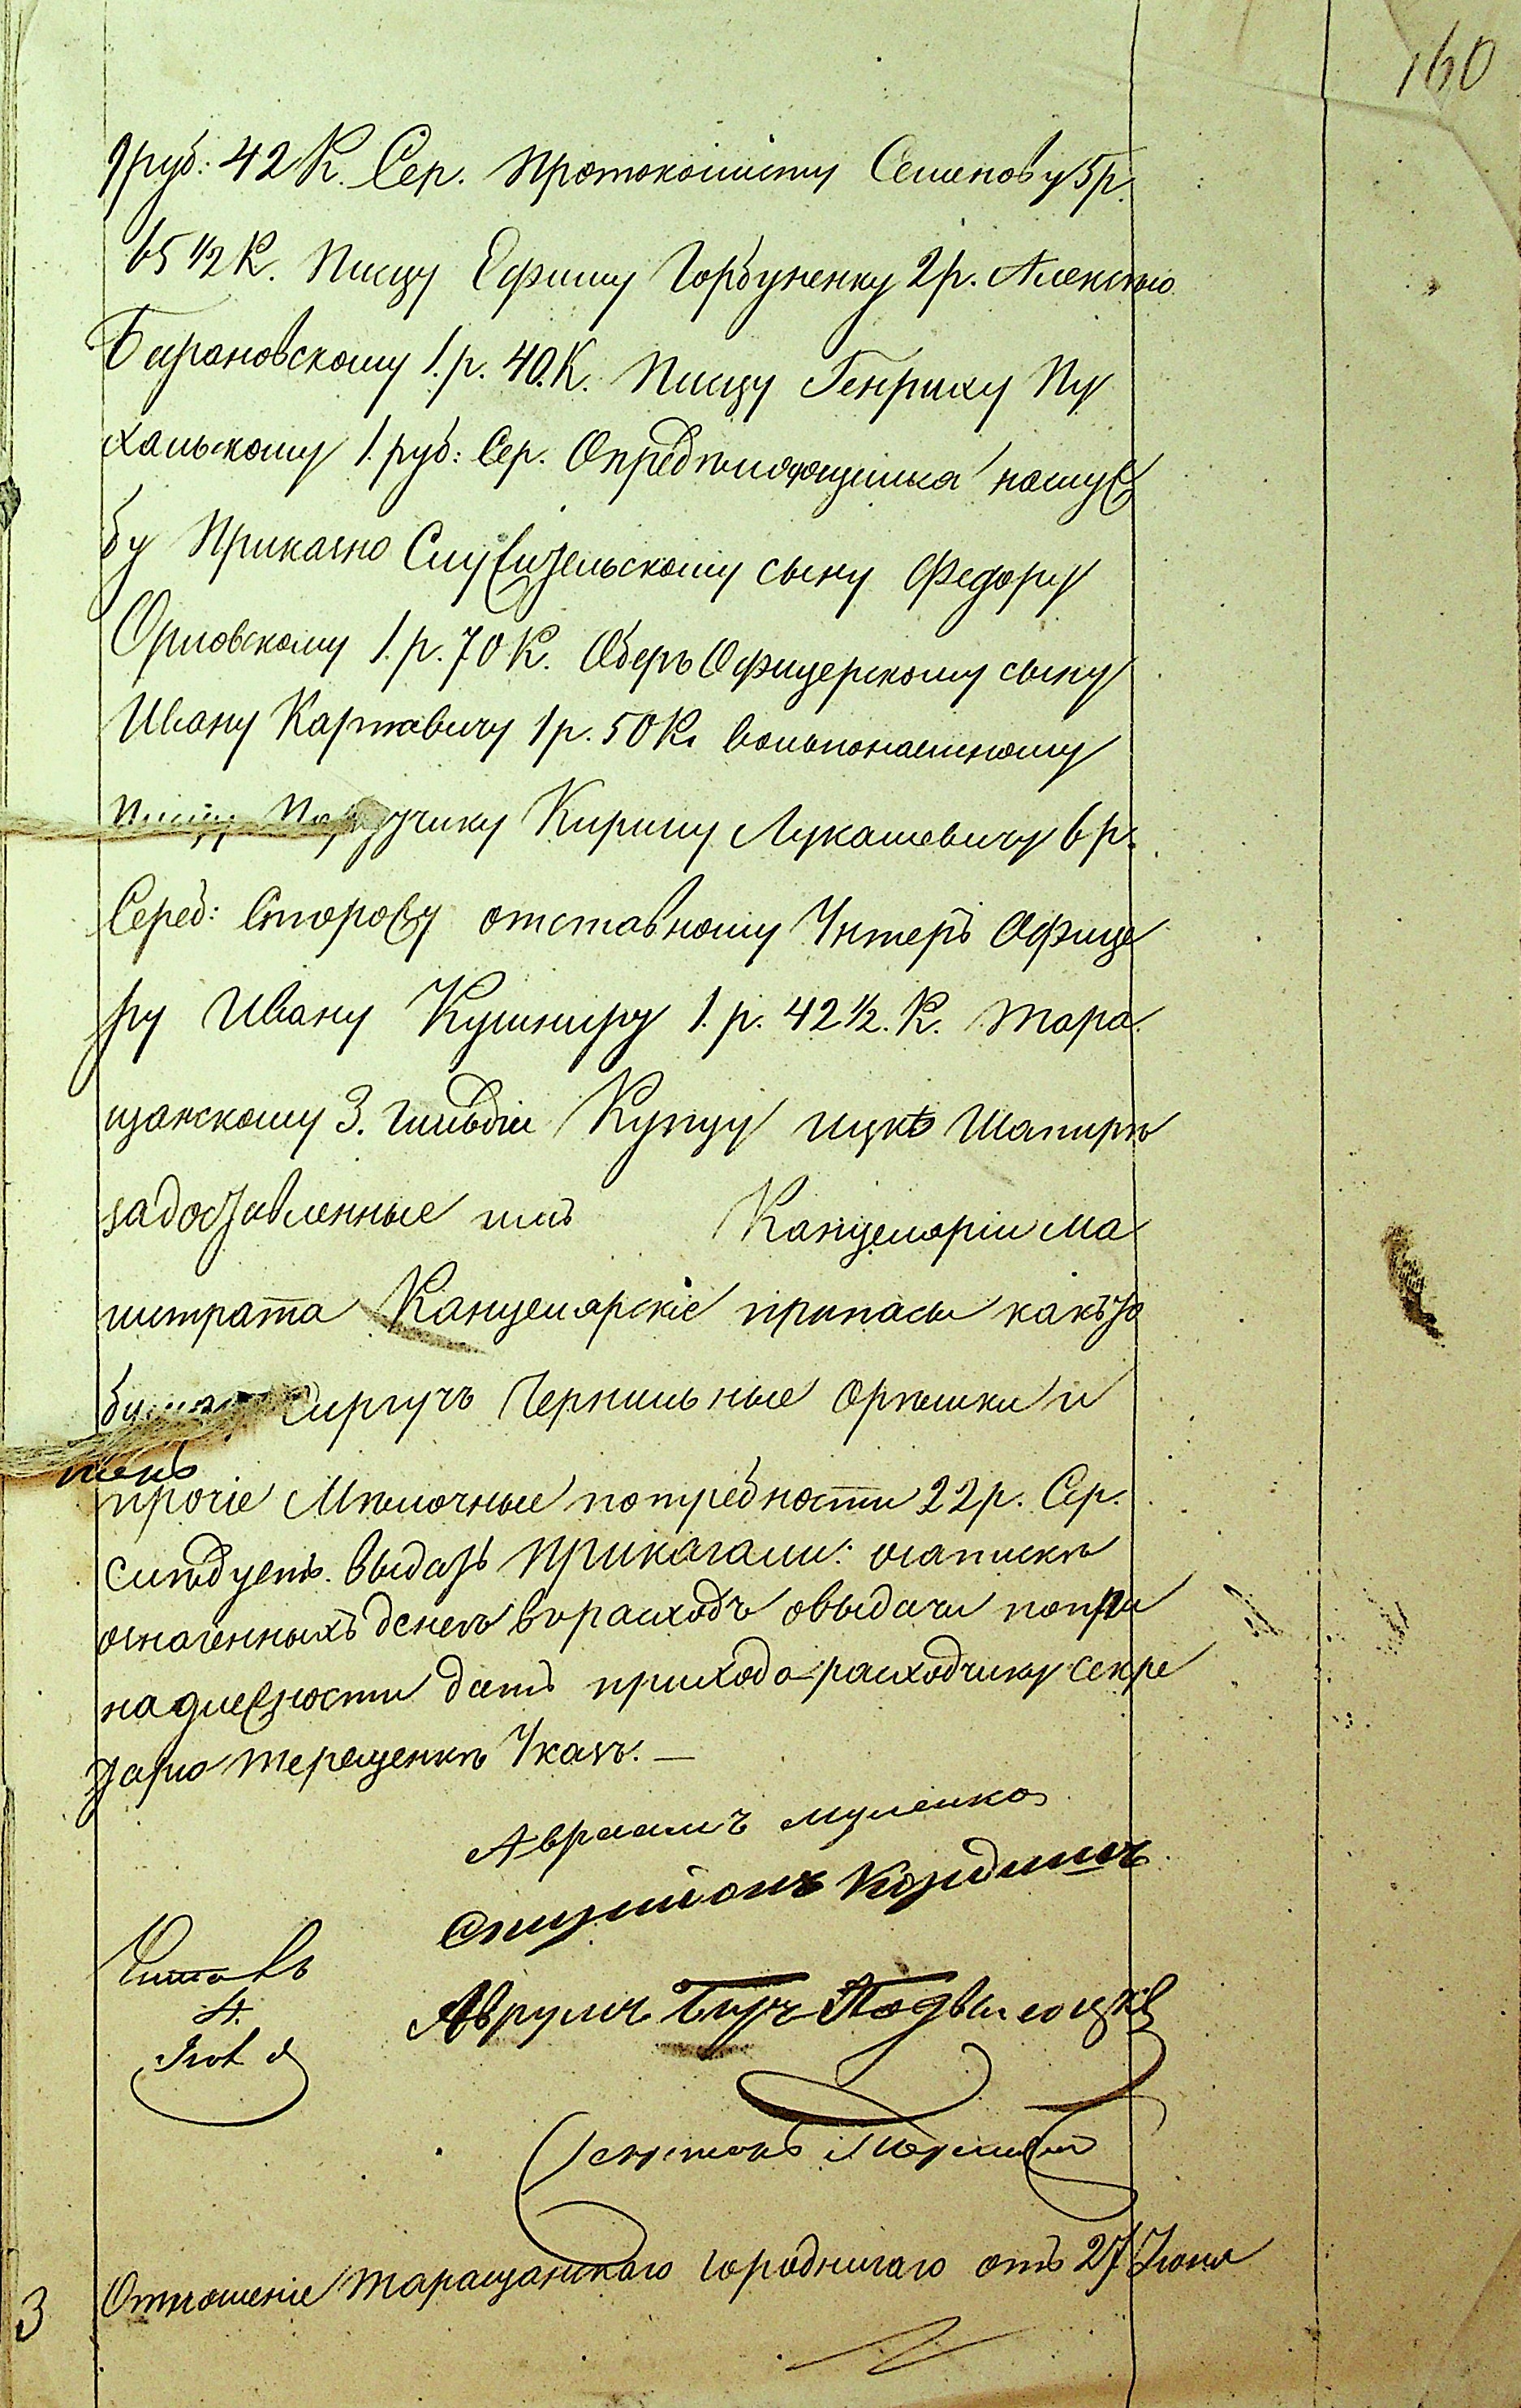 160
9 руб: 42 К. Сер. Протоколисту Семенову 5 р.
65 ½ К. Писцу Ефиму Горбуненку 2 р. Алексѣю
Барановскому 1. р. 40. К. Писцу Генриху Пу
хальскому 1. руб: Сер. Опредѣляющимся на служ
бу Приказно Служительскому сыну Федору
Орловскому 1. р. 70 К. Оберъ Офицерскому сыну
Ивану Карповичу 1 р. 50 К. вольнонаемному
писцу Поручику Кирилу Лукашевичу 6 р.
Сереб: Сторожу отставному Унтеръ Офице
ру Ивану Кушниру 1. р. 42 ½. К. Тара
щанскому 3. гильдіи Купцу Ицкѣ Шапирѣ
задоставленные имъ Канцеляріи Ма
гистрата Канцелярскіе припасы какъ то
бумагу Сиргучъ Чернильные орѣшки и
прочіе Мѣлочные потребности 22 р. Сер.
слѣдуетъ выдать приказали: озапискѣ
означенныхъ денегъ врасходъ овыдачи попри
надлежности дать приходо-расходчику Секре
тарю Терещенкѣ Указъ. —
Авраамъ
Читалъ
4.
Отношеніе Таращанскаго городничаго отъ 27 Іюня
3